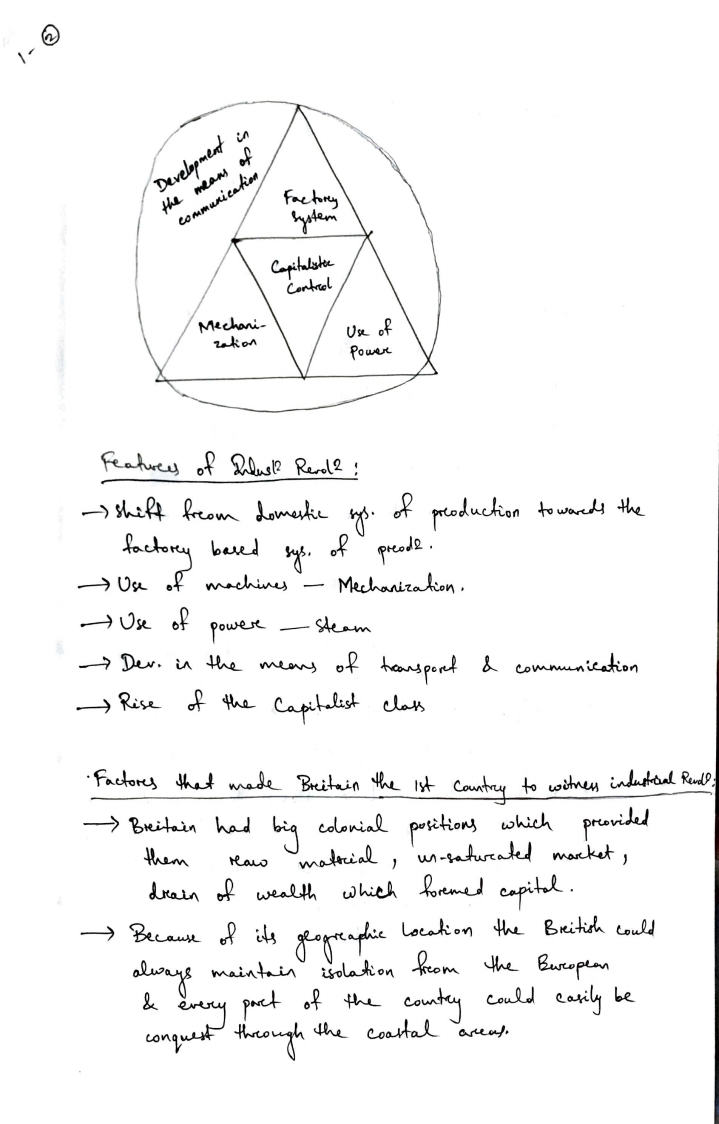 1- 2
Development in
the means of
communication
Factory
System
Capitalistic
Control
Mechani-
zation
Use of
Power
Features of Indusⁿ Revolⁿ :
→ Shift from domestic sys. of production towards the
factory based sys. of prodⁿ.
→ Use of machines — Mechanization.
→ Use of power — Steam
→ Dev. in the means of transport & communication
→ Rise of the Capitalist class
Factors that made Britain the 1st Country to witness industrial Revolⁿ:
→ Britain had big colonial positions which provided
them raw material, un-saturated market,
drain of wealth which formed capital.
→ Because of its geographic location the British could
always maintain isolation from the European
& every part of the country could easily be
conquest through the coastal areas.